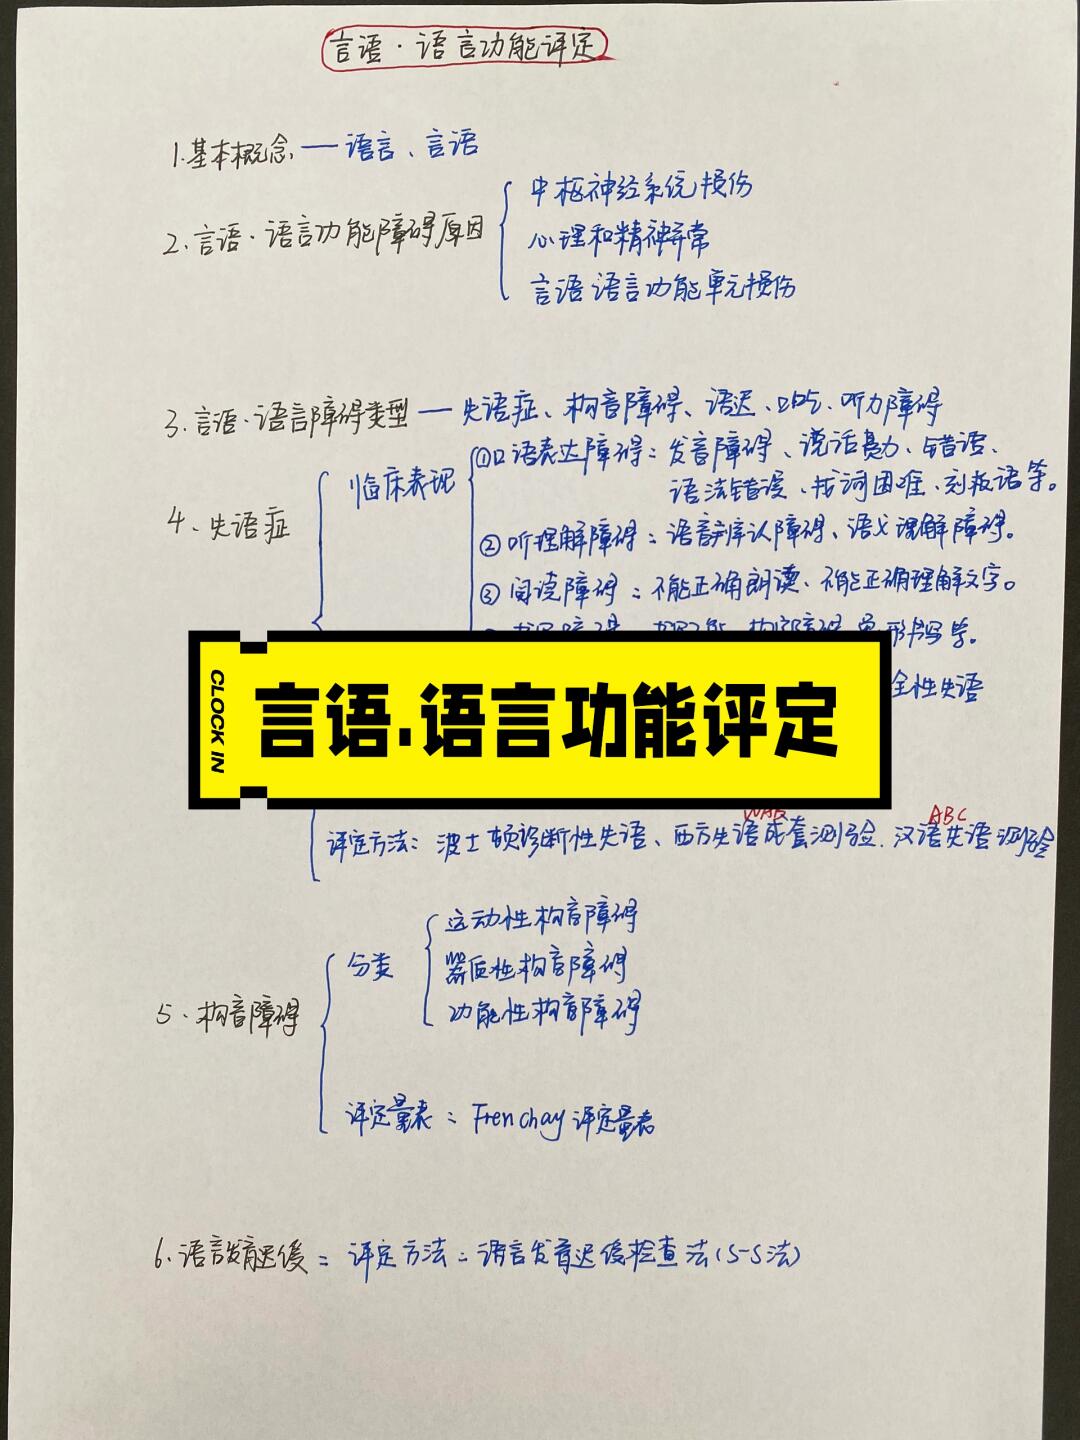 言语·语言功能评定
1.基本概念 — 语言、言语
2.言语·语言功能障碍原因
中枢神经系统损伤
心理和精神异常
言语语言功能单元损伤
3.言语·语言障碍类型 — 失语症、构音障碍、语迟、口吃、听力障碍
4、失语症
临床表现
①口语表达障碍:发音障碍、说话费力、错语、
语法错误、找词困难、刻板语等。
②听理解障碍:语音辨认障碍、语义理解障碍。
③阅读障碍:不能正确朗读、不能正确理解文字。
形书写等。
全性失语
CLOCK IN
言语.语言功能评定
WAB
ABC
评定方法:波士顿诊断性失语、西方失语成套测验、汉语失语测验
5、构音障碍
分类
运动性构音障碍
器质性构音障碍
功能性构音障碍
评定量表:Frenchay评定量表
6.语言发育迟缓:评定方法:语言发育迟缓检查法(S-S法)